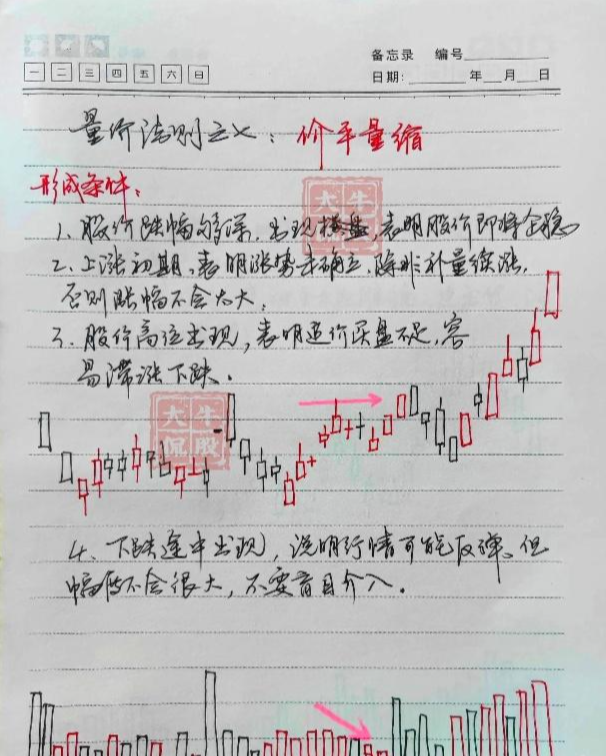 备忘录 编号
一 二 三 四 五 六 日
日期: 年 月 日
量价法则之义: 价平量缩
形成条件:
大牛
侃股
1、股价跌幅够深,出现横盘,表明股价即将企稳
2、上涨初期,表明涨势未确立,除非补量续涨,
否则涨幅不会太大,
3、股价高位出现,表明追价买盘不足,容
易滞涨下跌.
大牛
侃股
4、下跌途中出现,说明行情可能反弹、但
幅度不会很大,不要盲目介入.